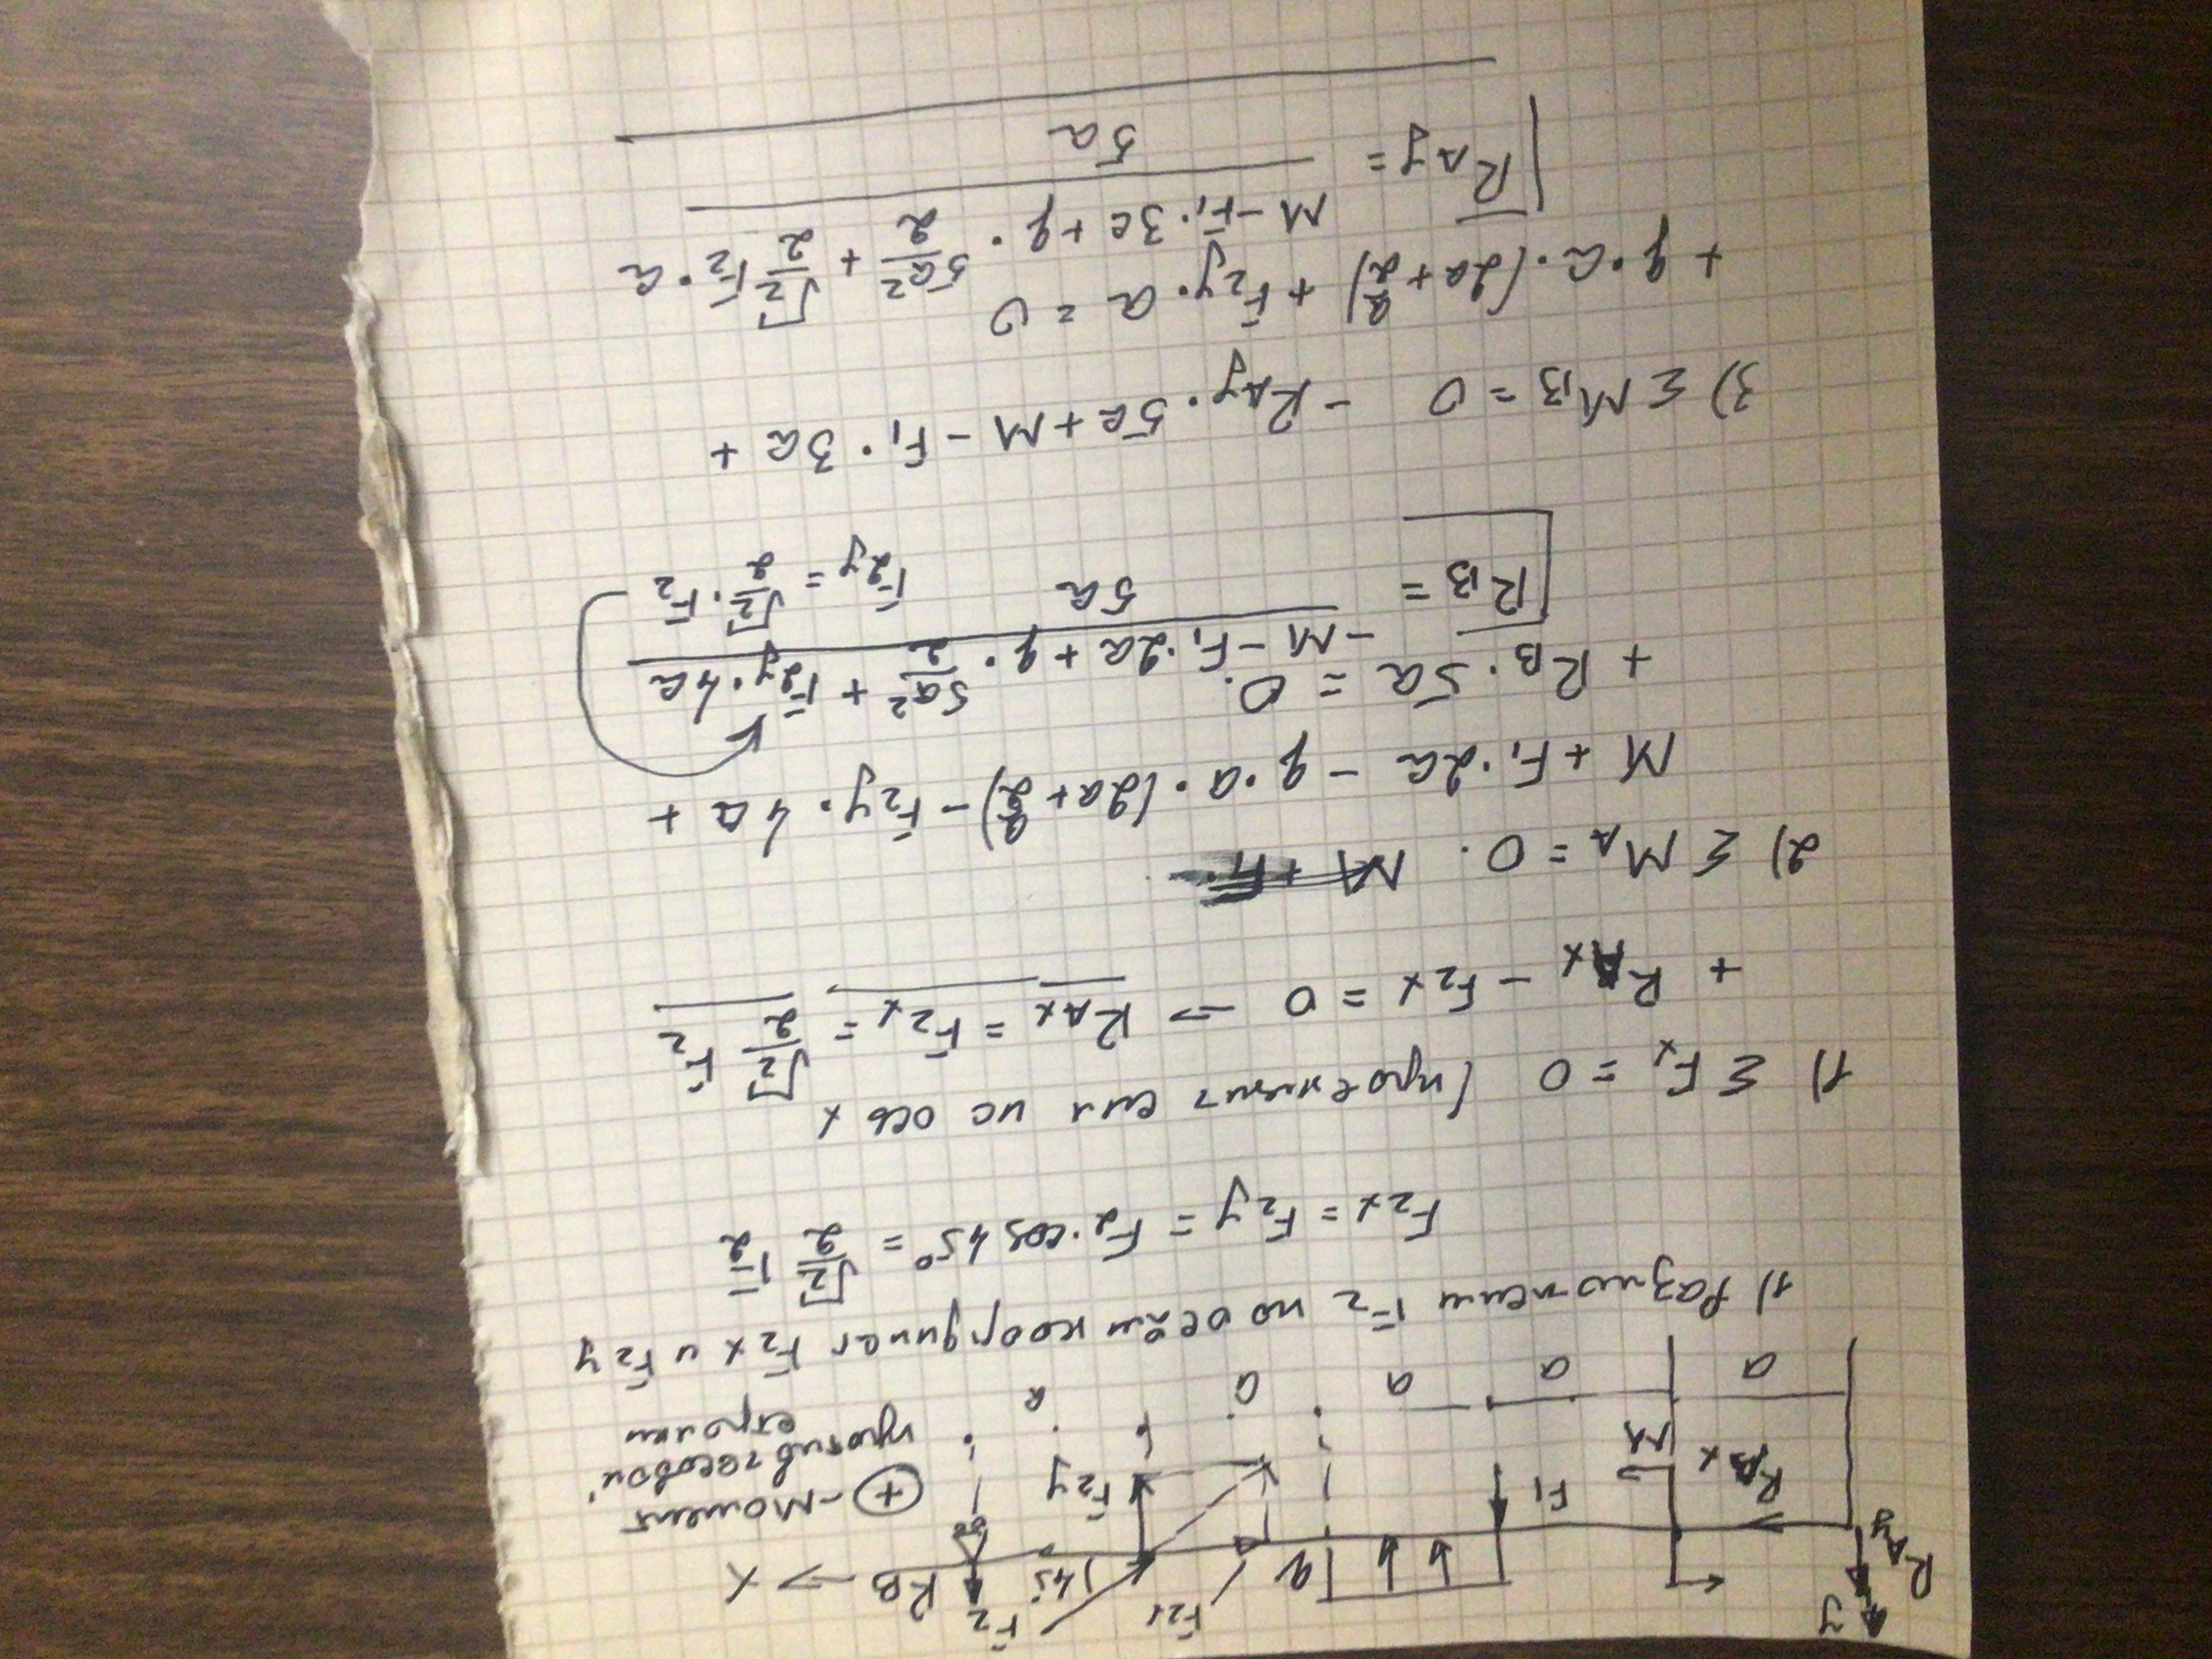 y
R_Ay F_2x F_2 45° R_B → x
q
R_Ax M F_1 F_2y ⊕ - момент против часовой стрелки
a a a a a
1) Разложения F_2 по осям координат F_2x и F_2y
F_2x = F_2y = F_2 · cos 45° = √2/2 F_2
1) Σ F_x = 0 (проекция сил на ось x
+ R_Ax - F_2x = 0 → R_Ax = F_2x = √2/2 F_2
2) Σ M_A = 0.
M + F_1 · 2a - q · a · (2a + a/2) - F_2y · 4a +
+ R_B · 5a = 0.
R_B = (-M - F_1 · 2a + q · 5a²/2 + F_2y · 4a) / 5a
F_2y = √2/2 · F_2
3) Σ M_B = 0 - R_Ay · 5a + M - F_1 · 3a +
+ q · a · (2a + a/2) + F_2y · a = 0
R_Ay = (M - F_1 · 3a + q · 5a²/2 + √2/2 F_2 · a) / 5a